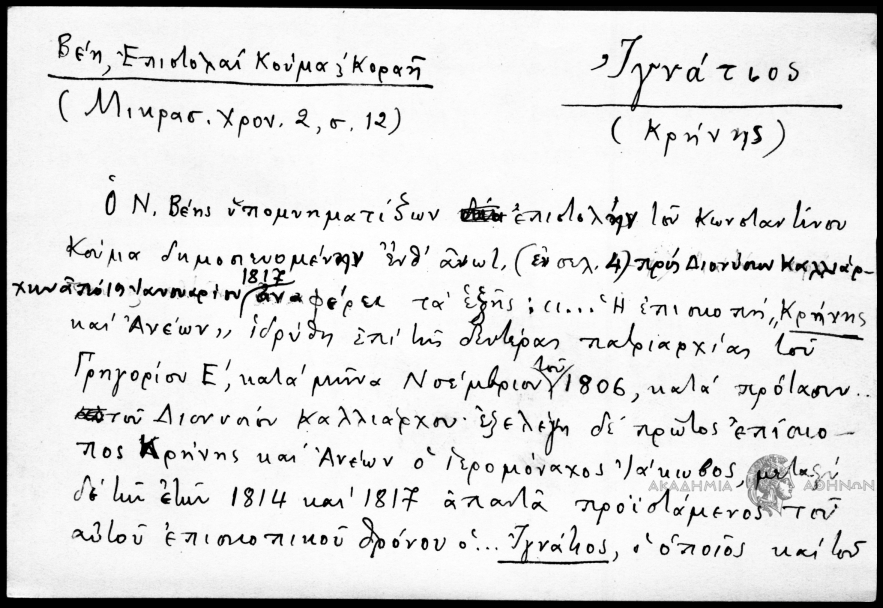 Βέη, Ἐπιστολαί Κούμα & Κοραῆ
Ἰγνάτιος
(Μικρασ. Χρον. 2, σ. 12)
(Κρήνης)
Ὁ Ν. Βέης ὑπομνηματίζων ἐπιστολήν τοῦ Κωνσταντίνου
Κούμα δημοσιευομένην ἔνθ' ἄνωτ. (ἐν σελ. 4) πρός Διονύσιον Καλλιάρ-
χην ἀπό 19 Ἰανουαρίου 1817 ἀναφέρει τά ἑξῆς: "... Ἡ ἐπισκοπή „Κρήνης
καί Ἀνέων„ ἱδρύθη ἐπί τῆς δευτέρας πατριαρχίας τοῦ
Γρηγορίου Ε', κατά μῆνα Νοέμβριον τοῦ 1806, κατά πρότασιν..
τοῦ Διονυσίου Καλλιάρχου. ἐξελέγη δέ πρῶτος ἐπίσκο-
πος Κρήνης καί Ἀνέων ὁ ἱερομόναχος Ἰάκωβος, μεταξύ
δέ τῶν ἐτῶν 1814 καί 1817 ἀπαντᾶ προϊστάμενος τοῦ
αὐτοῦ ἐπισκοπικοῦ θρόνου ὁ... Ἰγνάτιος, ὁ ὁποῖος καί τοῦ
ΑΚΑΔΗΜΙΑ ΑΘΗΝΩΝ